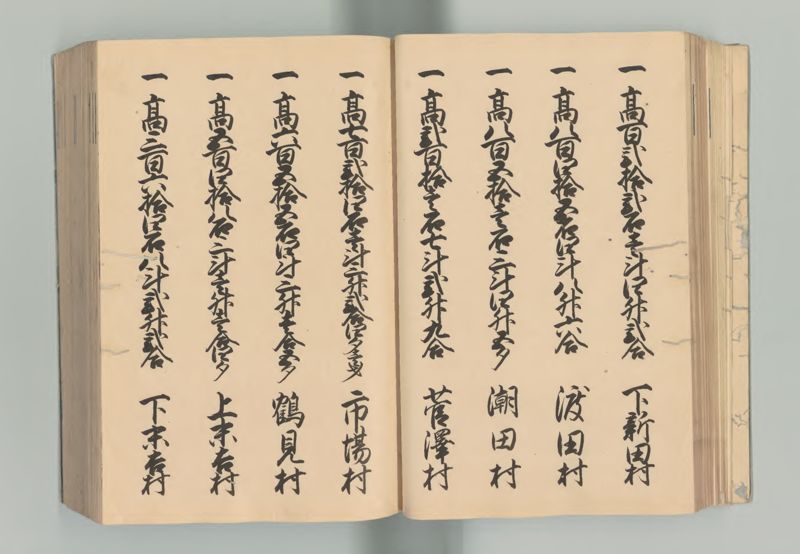 一 高百弐拾弐石壱斗四升弐合 下新田村
一 高八百四拾五石四斗八升六合 渡田村
一 高八百五拾壱石三斗四升五夕 潮田村
一 高弐百拾壱石七斗弐升九合 菅澤村
一 高七百弐拾四石壱斗三升弐合四夕 市場村
一 高六百五拾五石四斗三升壱合五夕 鶴見村
一 高五百四拾八石三斗壱升壱合四夕 上末吉村
一 高三百六拾四石八斗弐升弐合 下末吉村